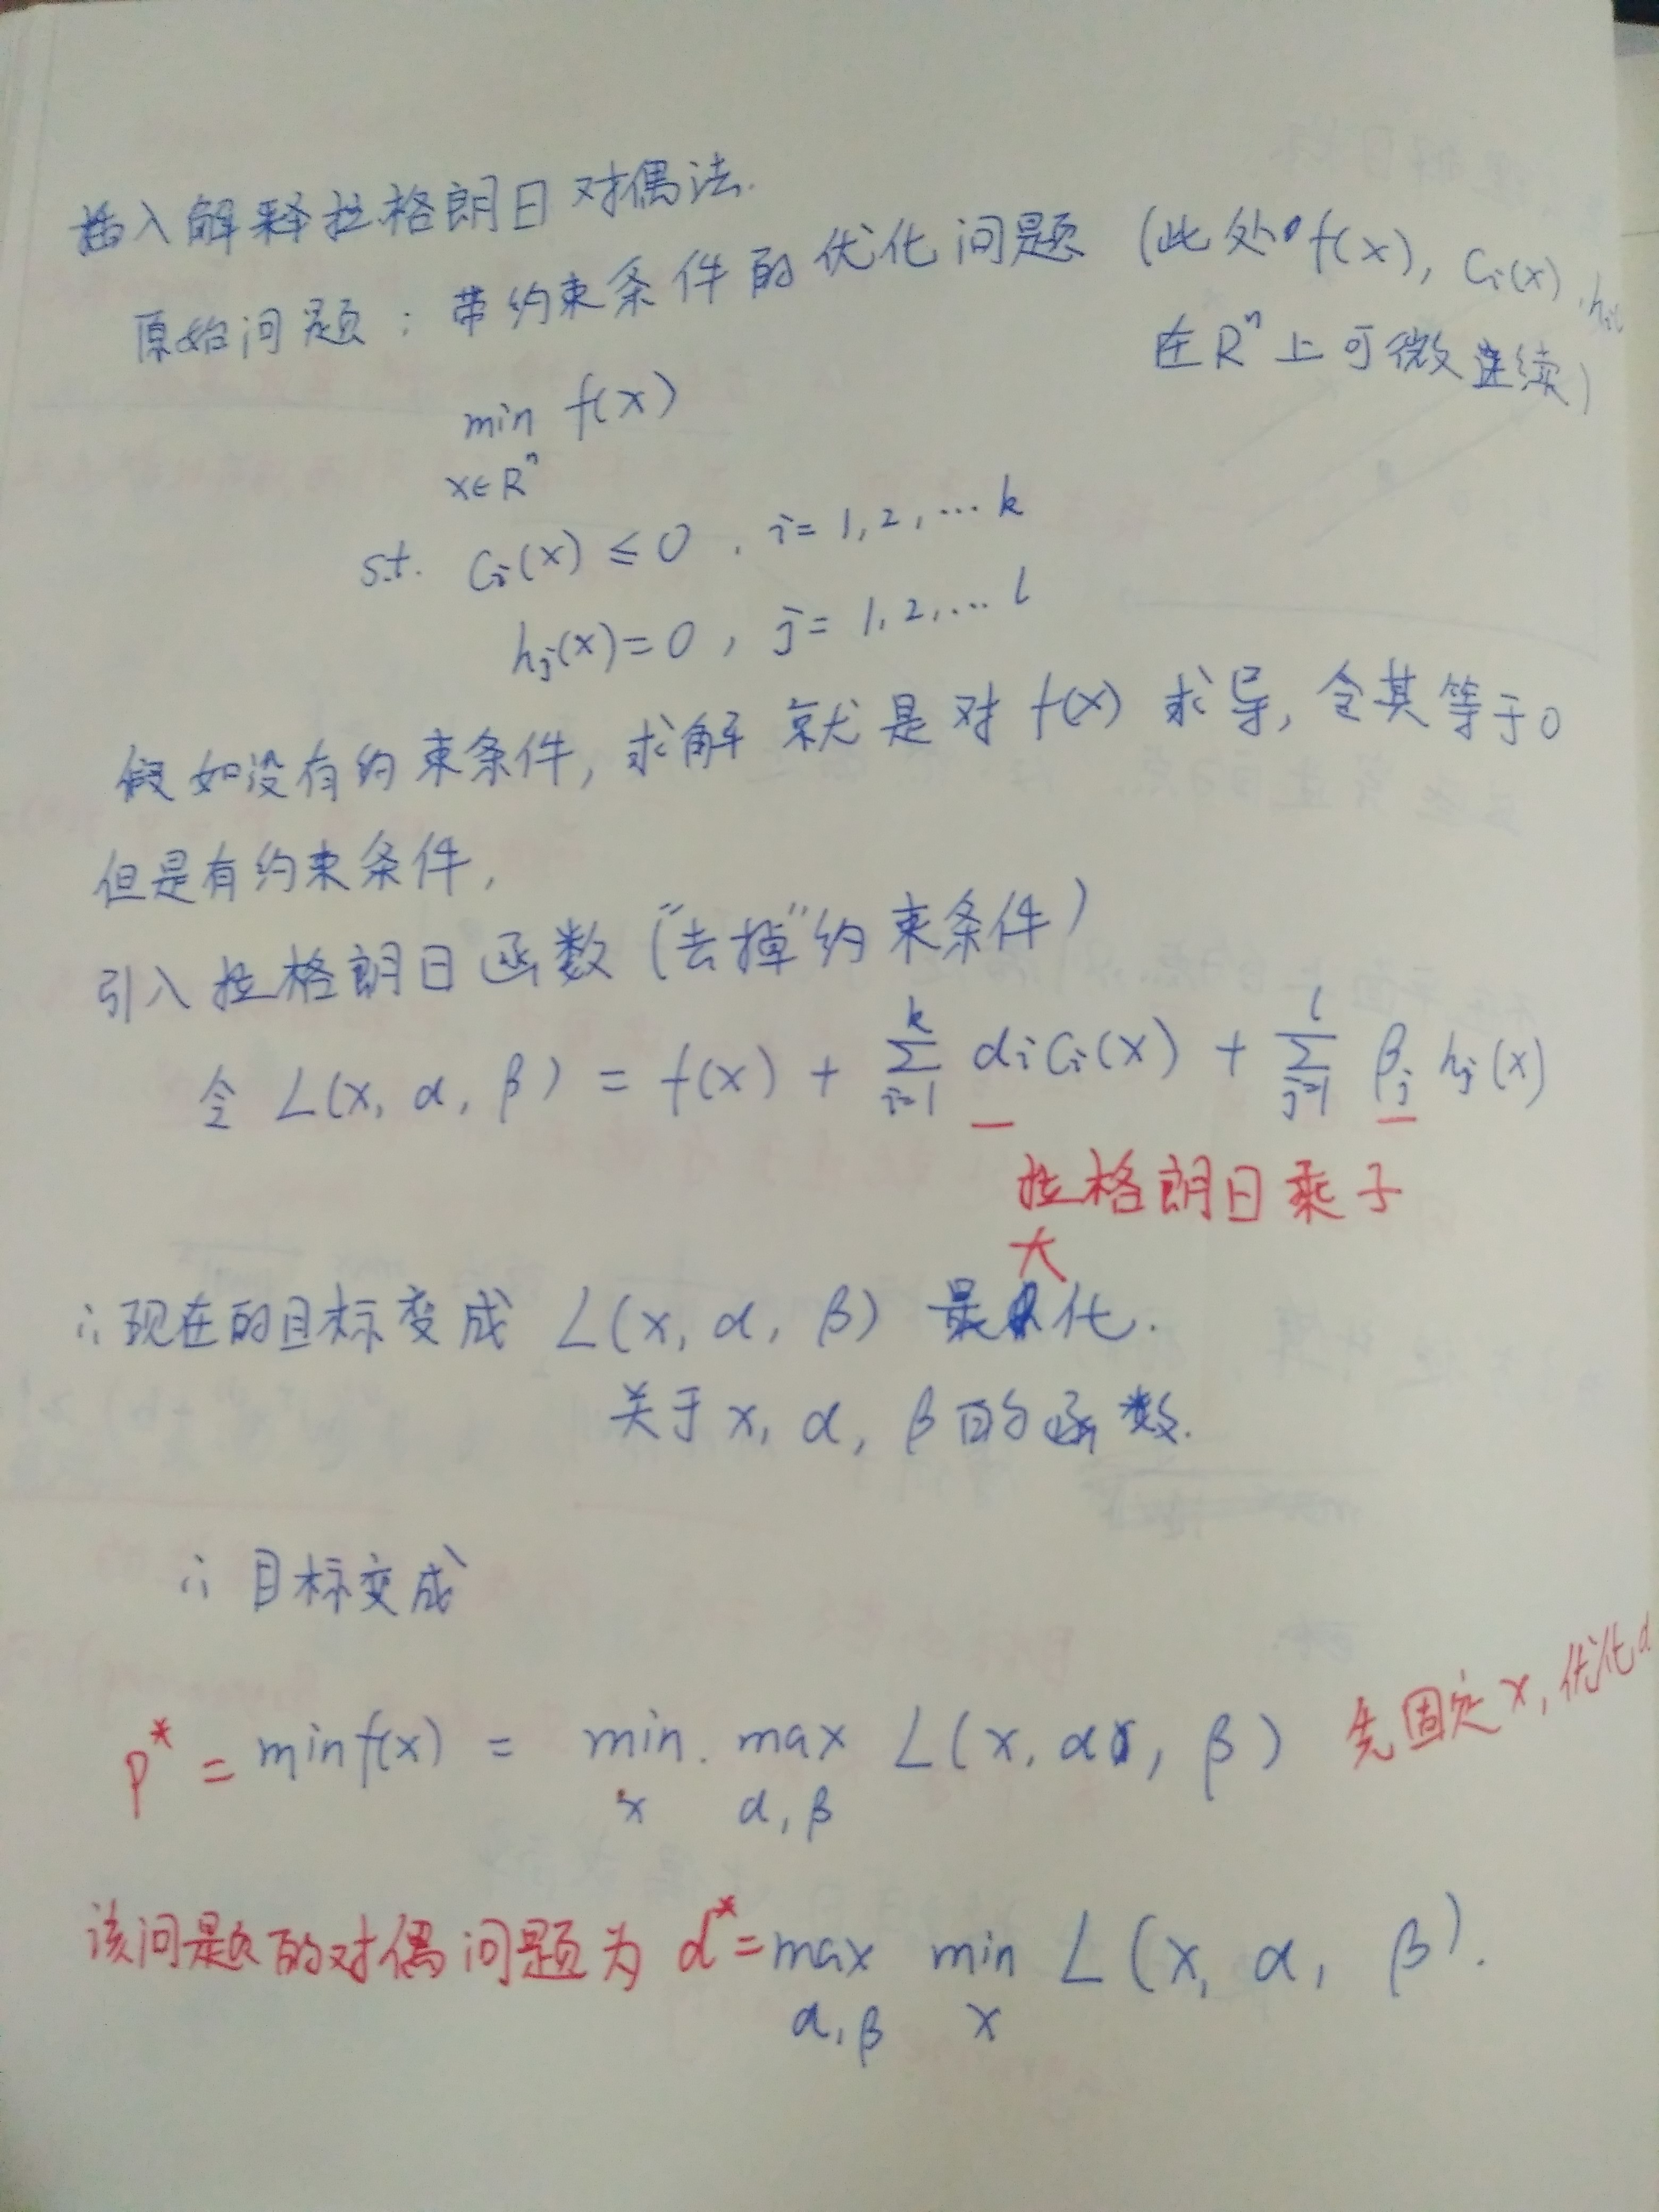 插入解释拉格朗日对偶法.
原始问题：带约束条件的优化问题 (此处 f(x), Ci(x), h
在 Rⁿ 上可微连续)
min f(x)
x∈Rⁿ
s.t. Ci(x) ≤ 0 , i= 1, 2, … k
hj(x)=0 , j= 1, 2, … l
假如没有约束条件, 求解就是对 f(x) 求导, 令其等于0
但是有约束条件,
引入拉格朗日函数 ("去掉"约束条件)
令 L(x, α, β) = f(x) + ∑ᵏᵢ₌₁ αi Ci(x) + ∑ˡⱼ₌₁ βj hj(x)
拉格朗日乘子
大
∴现在的目标变成 L(x, α, β) 最 化.
关于 x, α, β 的函数.
∴ 目标变成
p* = min f(x) = min. max L(x, α, β) 先固定x, 优化α
x α, β
该问题的对偶问题为 d*= max min L(x, α, β).
α, β x